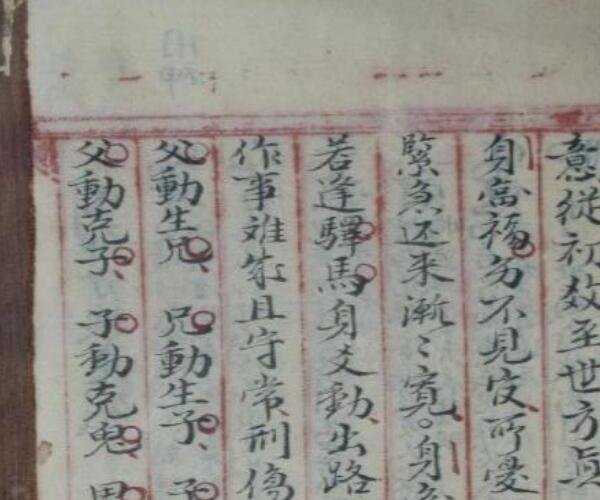 意從初发至世方眞
身當福勿不見安所憂
緊急还来漸〻寬。身
若逢驛馬身爻動、出路
作事难成且守常、刑傷
父動生兄、兄動生子、子
父動克子、子動克鬼、